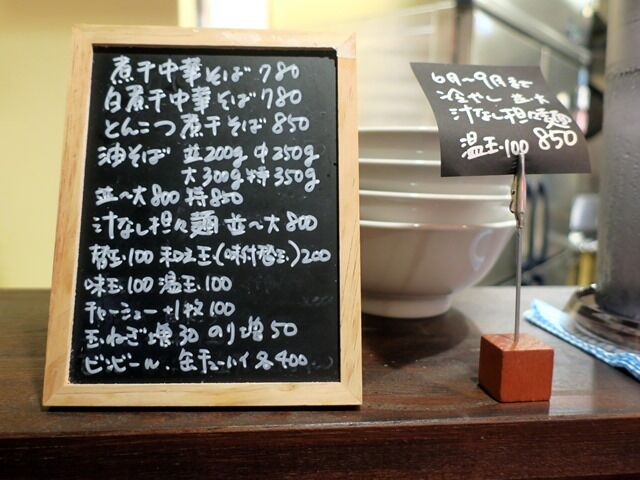 煮干中華そば 780
白煮干中華そば 780
とんこつ煮干そば 850
油そば 並200g 中250g
大300g 特350g
並〜大 800 特850
汁なし担々麺 並〜大 800
替玉・100 和え玉(味付替玉)200
味玉・100 温玉・100
チャーシュー+1枚100
玉ねぎ増30 のり増50
ビンビール、缶チューハイ 各400
6月〜9月まで
冷やし 並・大
汁なし担々麺
850
温玉・100